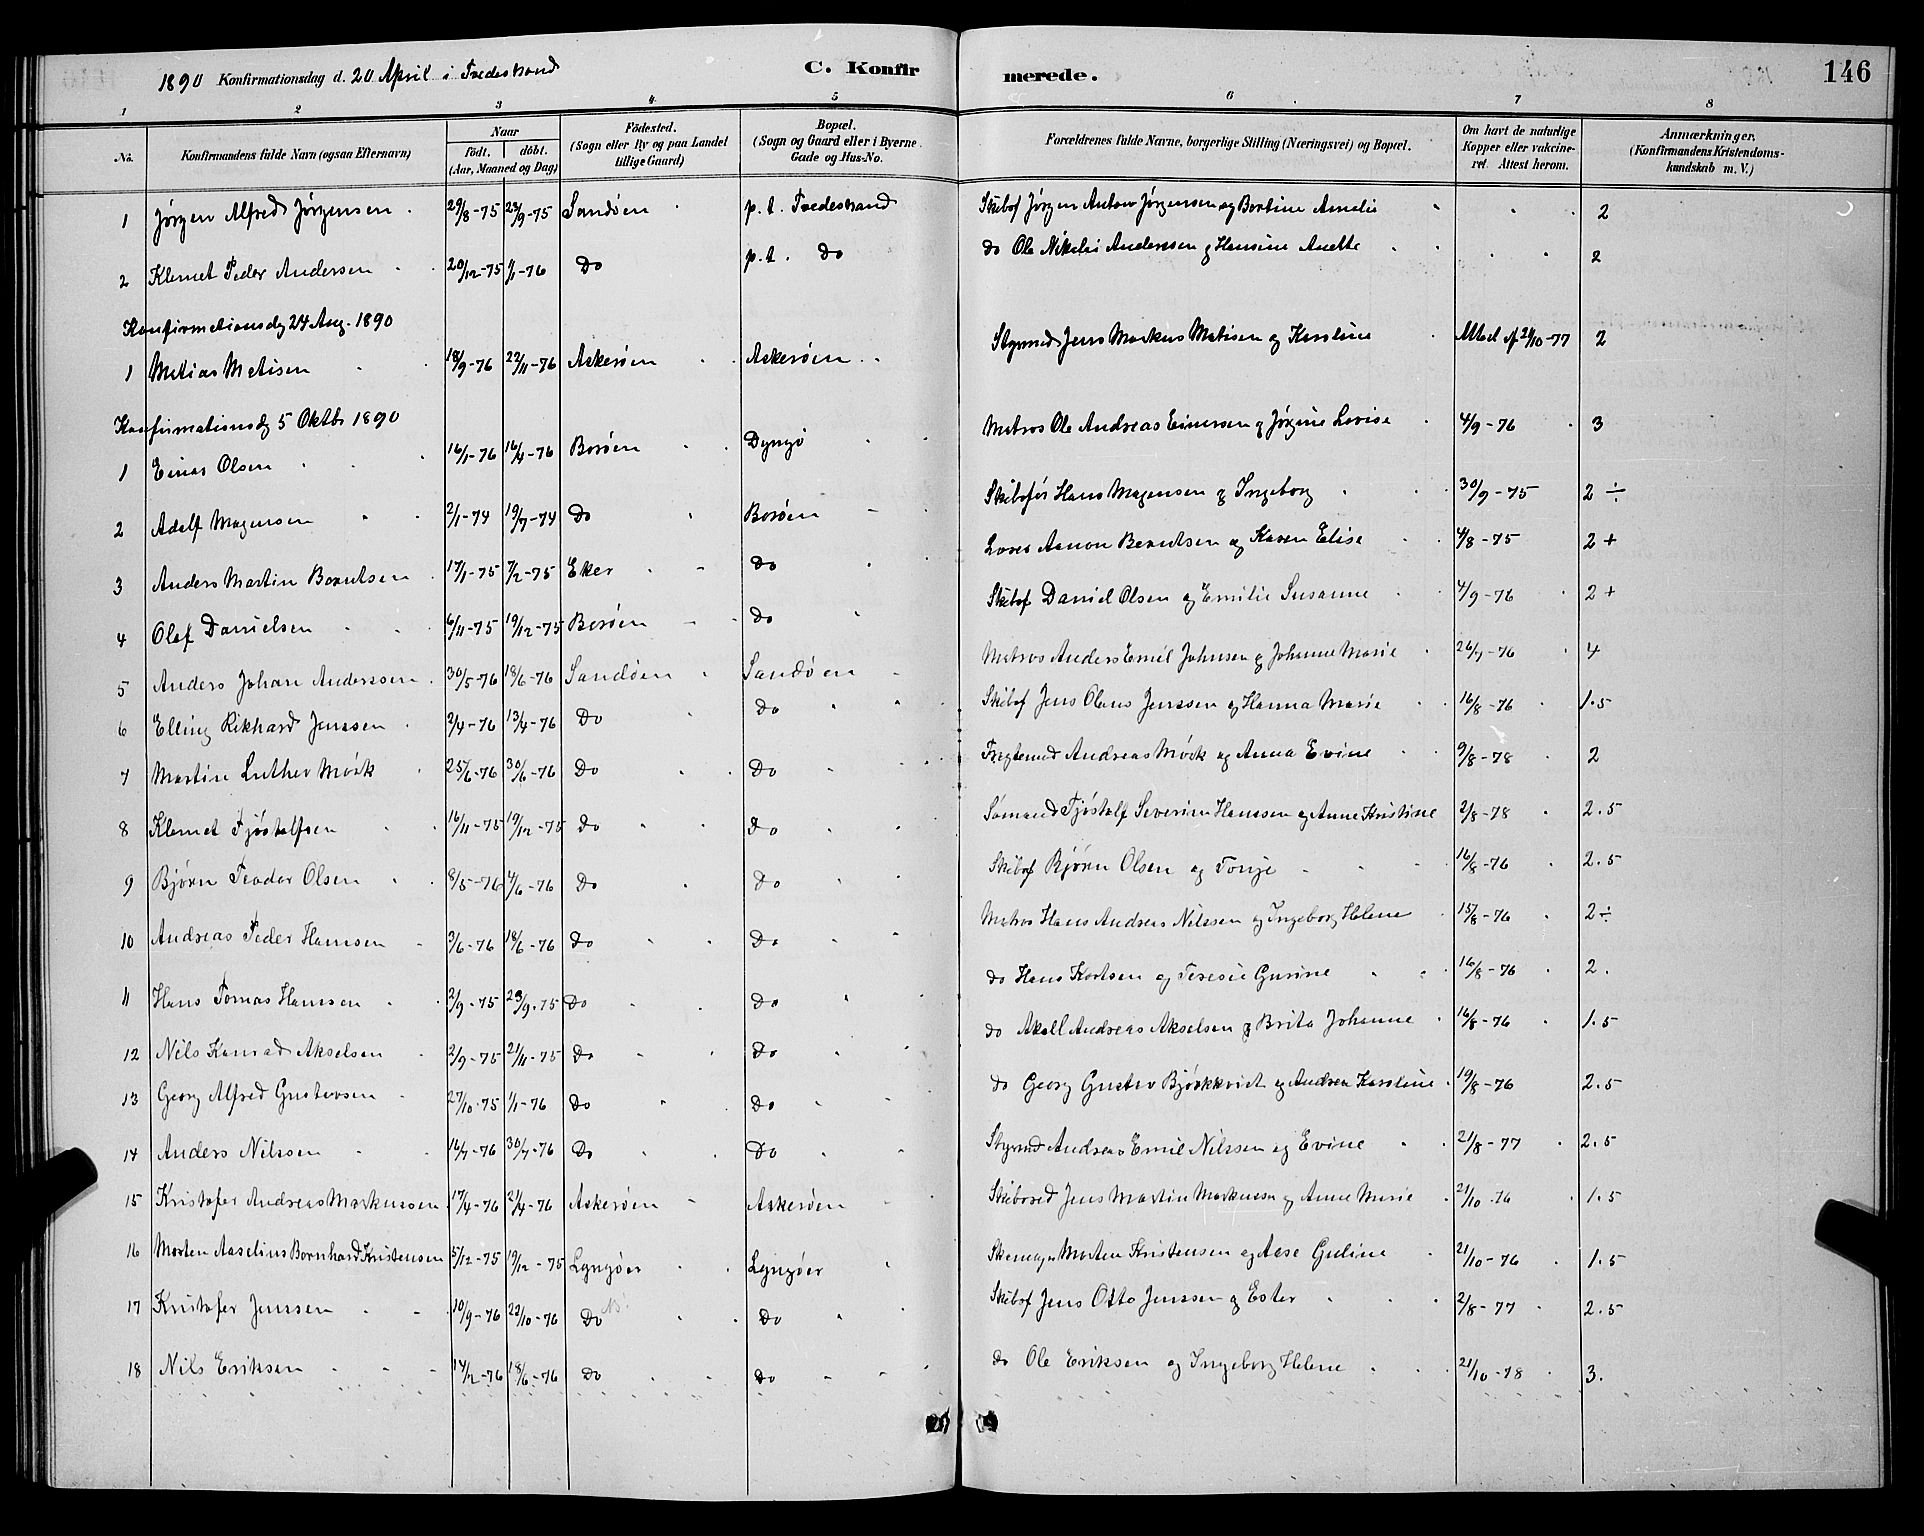 1890 Konfirmationsdag d. 20 April i Tvedestrand C. Konfirmerede. 146
1 2 3 4 5 6 7 8
No. Konfirmandens fulde Navn (ogsaa Efternavn) Naar födt. döbt. (Aar, Maaned og Dag) Födested. (Sogn eller By og paa Landet tillige Gaard) Bopæl. (Sogn og Gaard eller i Byerne Gade og Hus-No. Forældrenes fulde Navne, borgerlige Stilling (Næringsvei) og Bopæl. Om havt de naturlige Kopper eller vakcineret. Attest herom. Anmærkninger. (Konfirmandens Kristendomskundskab m. V.)
1 Jørgen Alfred Jørgensen 29/8-75 23/9-75 Sandøen p.t. Tvedestrand Skibsf Jørgen Anton Jørgensen og Bertine Amalie 2
2 Klemet Peder Andersen 20/12-75 1/1-76 Do p.t. Do do Ole Nikolai Anderssen og Hansine Anette 2
Konfirmationsdg 24 Aug. 1890
1 Matias Matisen 18/9-76 22/11-76 Askerøen Askerøen Styrmd Jens Markus Matisen og Karoline 24/10-77 2
Konfirmationsdg 5 Oktbr 1890
1 Einar Olsen 16/1-76 16/4-76 Borøen Dyngø Matros Ole Andreas Einersen og Jørgine Lovise 4/9-76 3
2 Adolf Magensen 2/1-74 19/7-74 Do Borøen Skibsfør Hans Magensen og Ingeborg 30/9-75 2 ÷
3 Anders Martin Berntsen 17/1-75 7/2-75 Eker Do Aanon Berntsen og Karen Elise 4/8-75 2+
4 Olaf Danielsen 6/11-75 19/12-75 Borøen Do Skibsf Daniel Olsen og Emilie Susanne 4/9-76 2+
5 Anders Johan Anderssen 30/5-76 18/6-76 Sandøen Sandøen Matros Anders Emil Johnsen og Johanne Marie 26/7-76 4
6 Elling Rikhard Jenssen 2/4-76 13/4-76 Do Do Skibsf Jens Olaus Jenssen og Hanna Marie 16/8-76 1.5
7 Martin Luther Mørk 25/6-76 30/6-76 Do Do Andreas Mørk og Anna Evine 9/8-78 2
8 Klemet Tjøstolfsen 16/11-75 19/12-75 Do Do Sømand Tjøstolf Severin Hanssen og Anne Kristine 2/8-78 2.5
9 Bjørn Teodor Olsen 8/5-76 4/6-76 Do Do Skibsf Bjørn Olsen og Tonje 16/8-76 2.5
10 Andreas Peder Hanssen 3/6-76 18/6-76 Do Do Matros Hans Andreas Nilssen og Ingeborg Helene 15/8-76 2÷
11 Hans Tomas Hanssen 2/9-75 23/9-75 Do Do do Hans Kortsen og Teresie Gurine 16/8-76 2.
12 Nils Konrad Akselsen 2/9-75 21/11-75 Do Do do Aksel Andreas Akselsen og Brita Johanne 16/8-76 1.5
13 Georg Alfred Gustavsen 27/10-75 1/1-76 Do Do do Georg Gustav Bjørkkvist og Andrea Karoline 19/8-76 2.5
14 Anders Nilssen 16/7-76 30/7-76 Do Do Styrmd Andreas Emil Nilssen og Evine 21/8-77 2.5
15 Kristofer Andreas Markussen 17/4-76 21/4-76 Askerøen Askerøen Skibsred Jens Martin Markussen og Anne Marie 21/10-76 1.5
16 Morten Aaselius Bernhard Kristensen 5/12-75 19/12-75 Lyngøer Lyngøer Morten Kristensen og Aase Guline 21/10-76 1.5
17 Kristofer Jenssen 10/9-76 22/10-76 Do Do Skibsf Jens Otto Jenssen og Ester 2/8-77 2.5
18 Nils Eriksen 14/2-76 18/6-76 Do Do do Ole Eriksen og Ingeborg Helene 21/10-78 3.